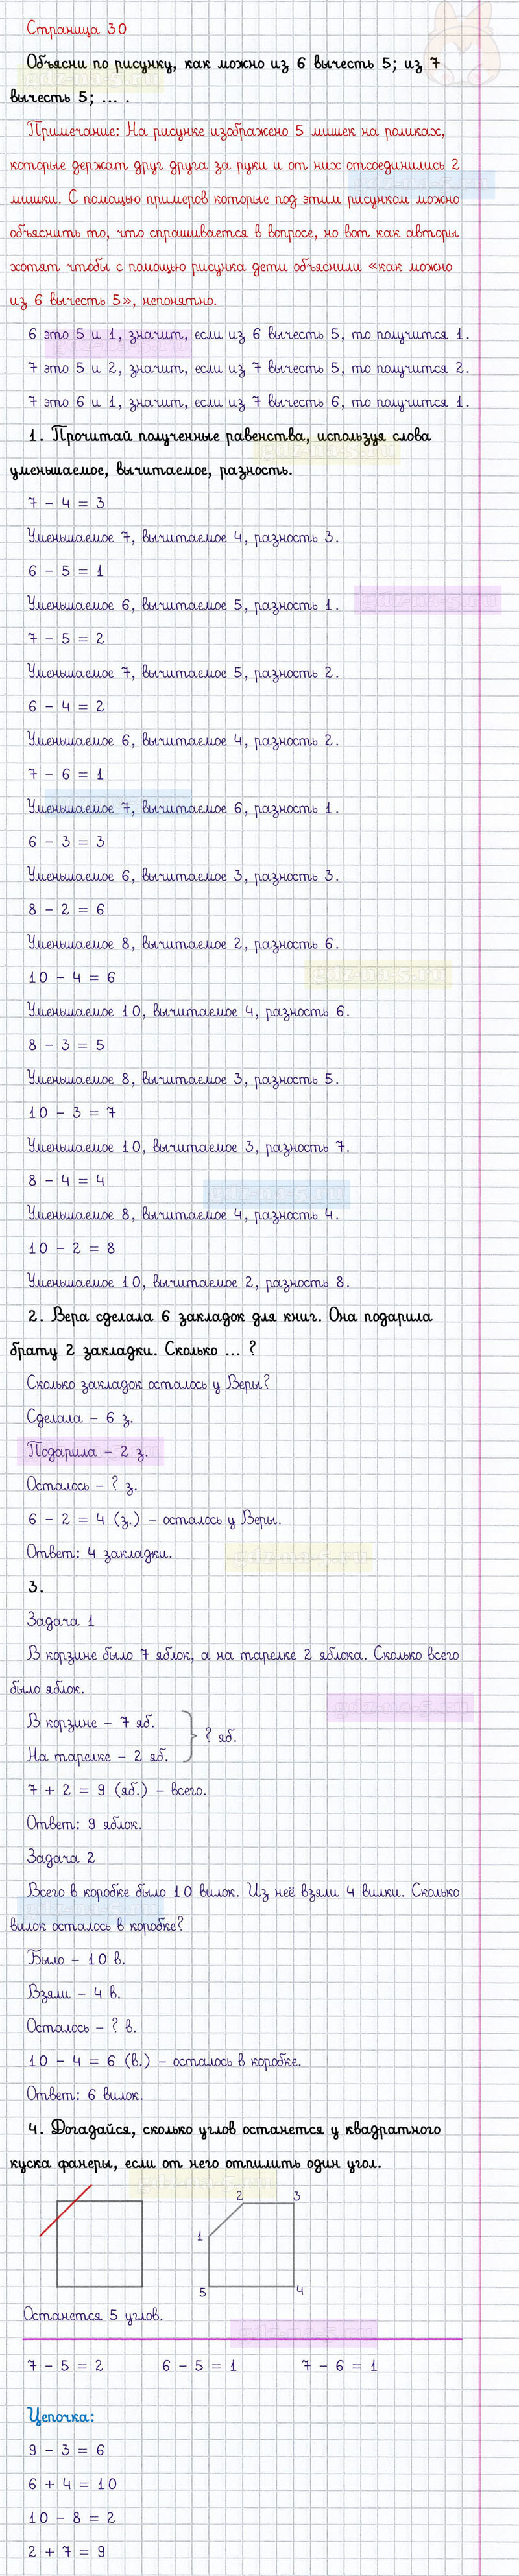 Страница 30
Объясни по рисунку, как можно из 6 вычесть 5; из 7
вычесть 5; ... .
Примечание: На рисунке изображено 5 мишек на роликах,
которые держат друг друга за руки и от них отсоединились 2
мишки. С помощью примеров которые под этим рисунком можно
объяснить то, что спрашивается в вопросе, но вот как авторы
хотят чтобы с помощью рисунка дети объяснили «как можно
из 6 вычесть 5», непонятно.
6 это 5 и 1, значит, если из 6 вычесть 5, то получится 1.
7 это 5 и 2, значит, если из 7 вычесть 5, то получится 2.
7 это 6 и 1, значит, если из 7 вычесть 6, то получится 1.
1. Прочитай полученные равенства, используя слова
уменьшаемое, вычитаемое, разность.
7 – 4 = 3
Уменьшаемое 7, вычитаемое 4, разность 3.
6 – 5 = 1
Уменьшаемое 6, вычитаемое 5, разность 1.
7 – 5 = 2
Уменьшаемое 7, вычитаемое 5, разность 2.
6 – 4 = 2
Уменьшаемое 6, вычитаемое 4, разность 2.
7 – 6 = 1
Уменьшаемое 7, вычитаемое 6, разность 1.
6 – 3 = 3
Уменьшаемое 6, вычитаемое 3, разность 3.
8 – 2 = 6
Уменьшаемое 8, вычитаемое 2, разность 6.
10 – 4 = 6
Уменьшаемое 10, вычитаемое 4, разность 6.
8 – 3 = 5
Уменьшаемое 8, вычитаемое 3, разность 5.
10 – 3 = 7
Уменьшаемое 10, вычитаемое 3, разность 7.
8 – 4 = 4
Уменьшаемое 8, вычитаемое 4, разность 4.
10 – 2 = 8
Уменьшаемое 10, вычитаемое 2, разность 8.
2. Вера сделала 6 закладок для книг. Она подарила
брату 2 закладки. Сколько ... ?
Сколько закладок осталось у Веры?
Сделала – 6 з.
Подарила – 2 з.
Осталось – ? з.
6 – 2 = 4 (з.) – осталось у Веры.
Ответ: 4 закладки.
3.
Задача 1
В корзине было 7 яблок, а на тарелке 2 яблока. Сколько всего
было яблок.
В корзине – 7 яб.
? яб.
На тарелке – 2 яб.
7 + 2 = 9 (яб.) – всего.
Ответ: 9 яблок.
Задача 2
Всего в коробке было 10 вилок. Из неё взяли 4 вилки. Сколько
вилок осталось в коробке?
Было – 10 в.
Взяли – 4 в.
Осталось – ? в.
10 – 4 = 6 (в.) – осталось в коробке.
Ответ: 6 вилок.
4. Догадайся, сколько углов останется у квадратного
куска фанеры, если от него отпилить один угол.
2 3
1
5 4
Останется 5 углов.
7 – 5 = 2 6 – 5 = 1 7 – 6 = 1
Цепочка:
9 – 3 = 6
6 + 4 = 10
10 – 8 = 2
2 + 7 = 9